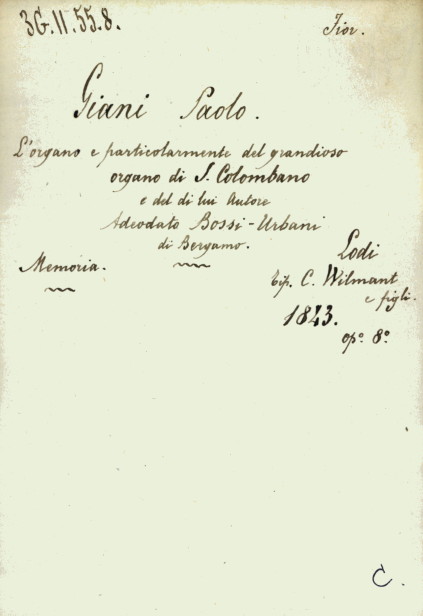 3G.II.55.8.
Fior.
Giani Paolo.
L'organo e particolarmente del grandioso
organo di S. Colombano
e del di lui Autore
Adeodato Bossi-Urbani
di Bergamo.
Memoria.
Lodi
tip. C. Wilmant
e figli.
1843.
op°. 8°.
C.